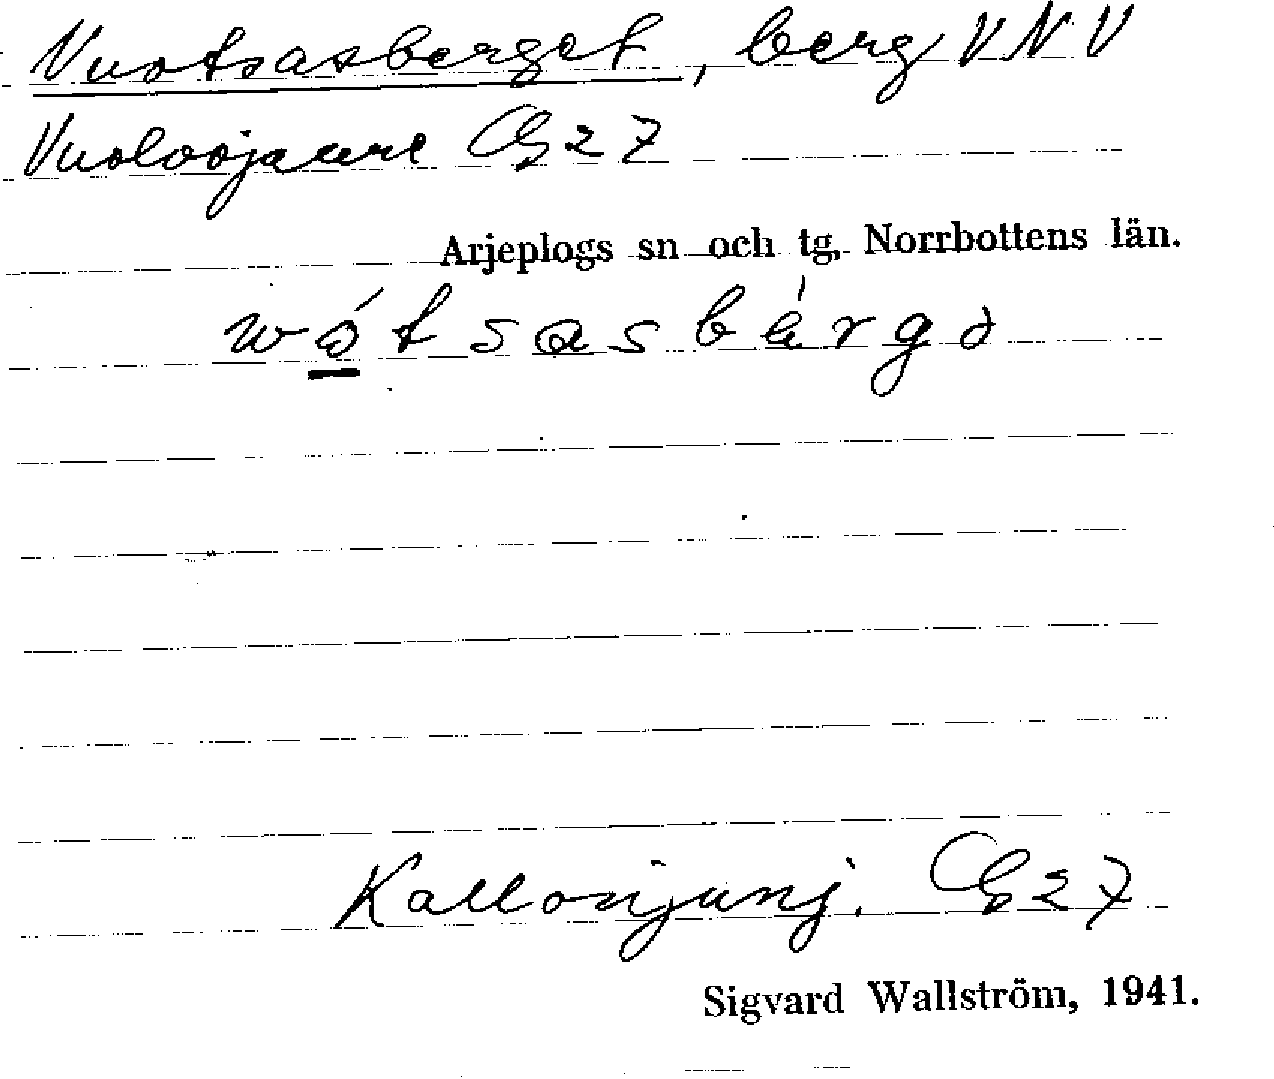 Vuotsasberget, berg VNV
Vuolvojaure G27
Arjeplogs sn och tg, Norrbottens län.
wótsasbärgə
G27
Sigvard Wallström, 1941.